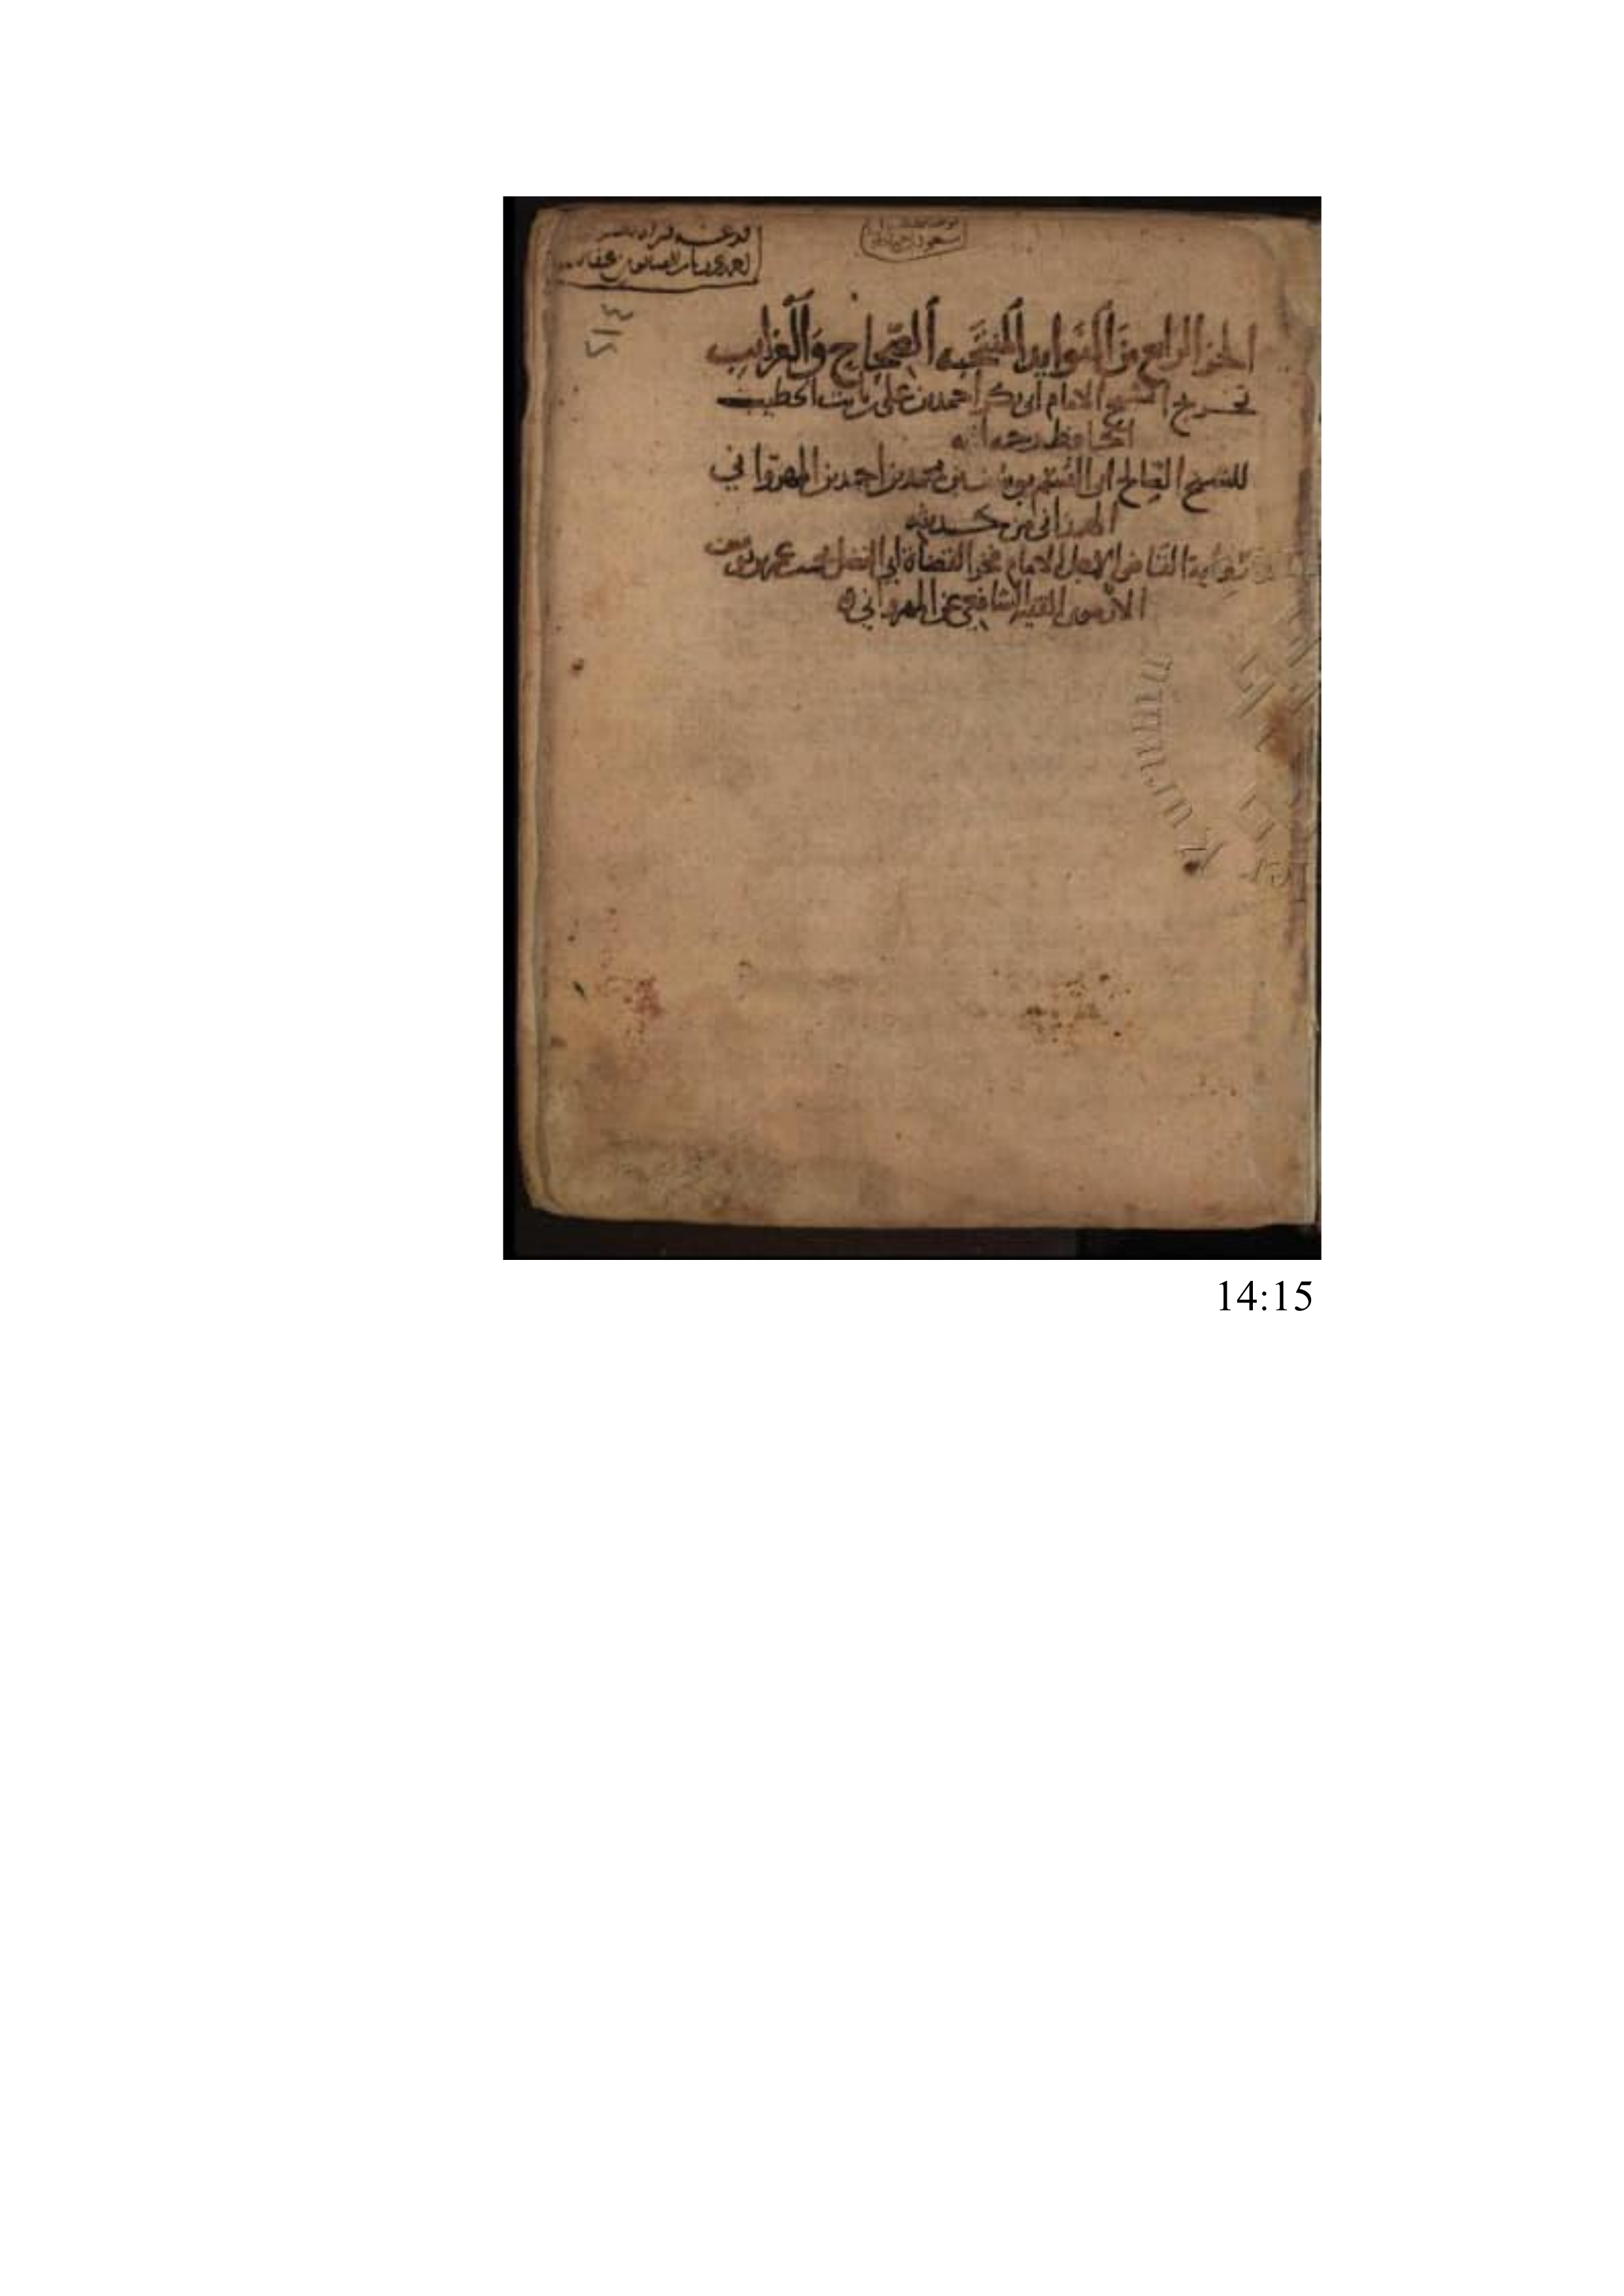 الجزء الرابع من الفوايد المنتخبه الصحاح والغرايب
تخريج الشيخ الامام ابي بكر احمد بن علي بن ثابت الخطيب
الحافظ رحمه الله
للشيخ الصالح ابي القسم يوسف بن محمد بن احمد بن المهرواني
الهمذاني من حديثه
رواية القاضي الاجل الامام فخر القضاة ابي الفضل محمد بن عمر بن يوسف
الارموي الفقيه الشافعي عن المهرواني
14:15